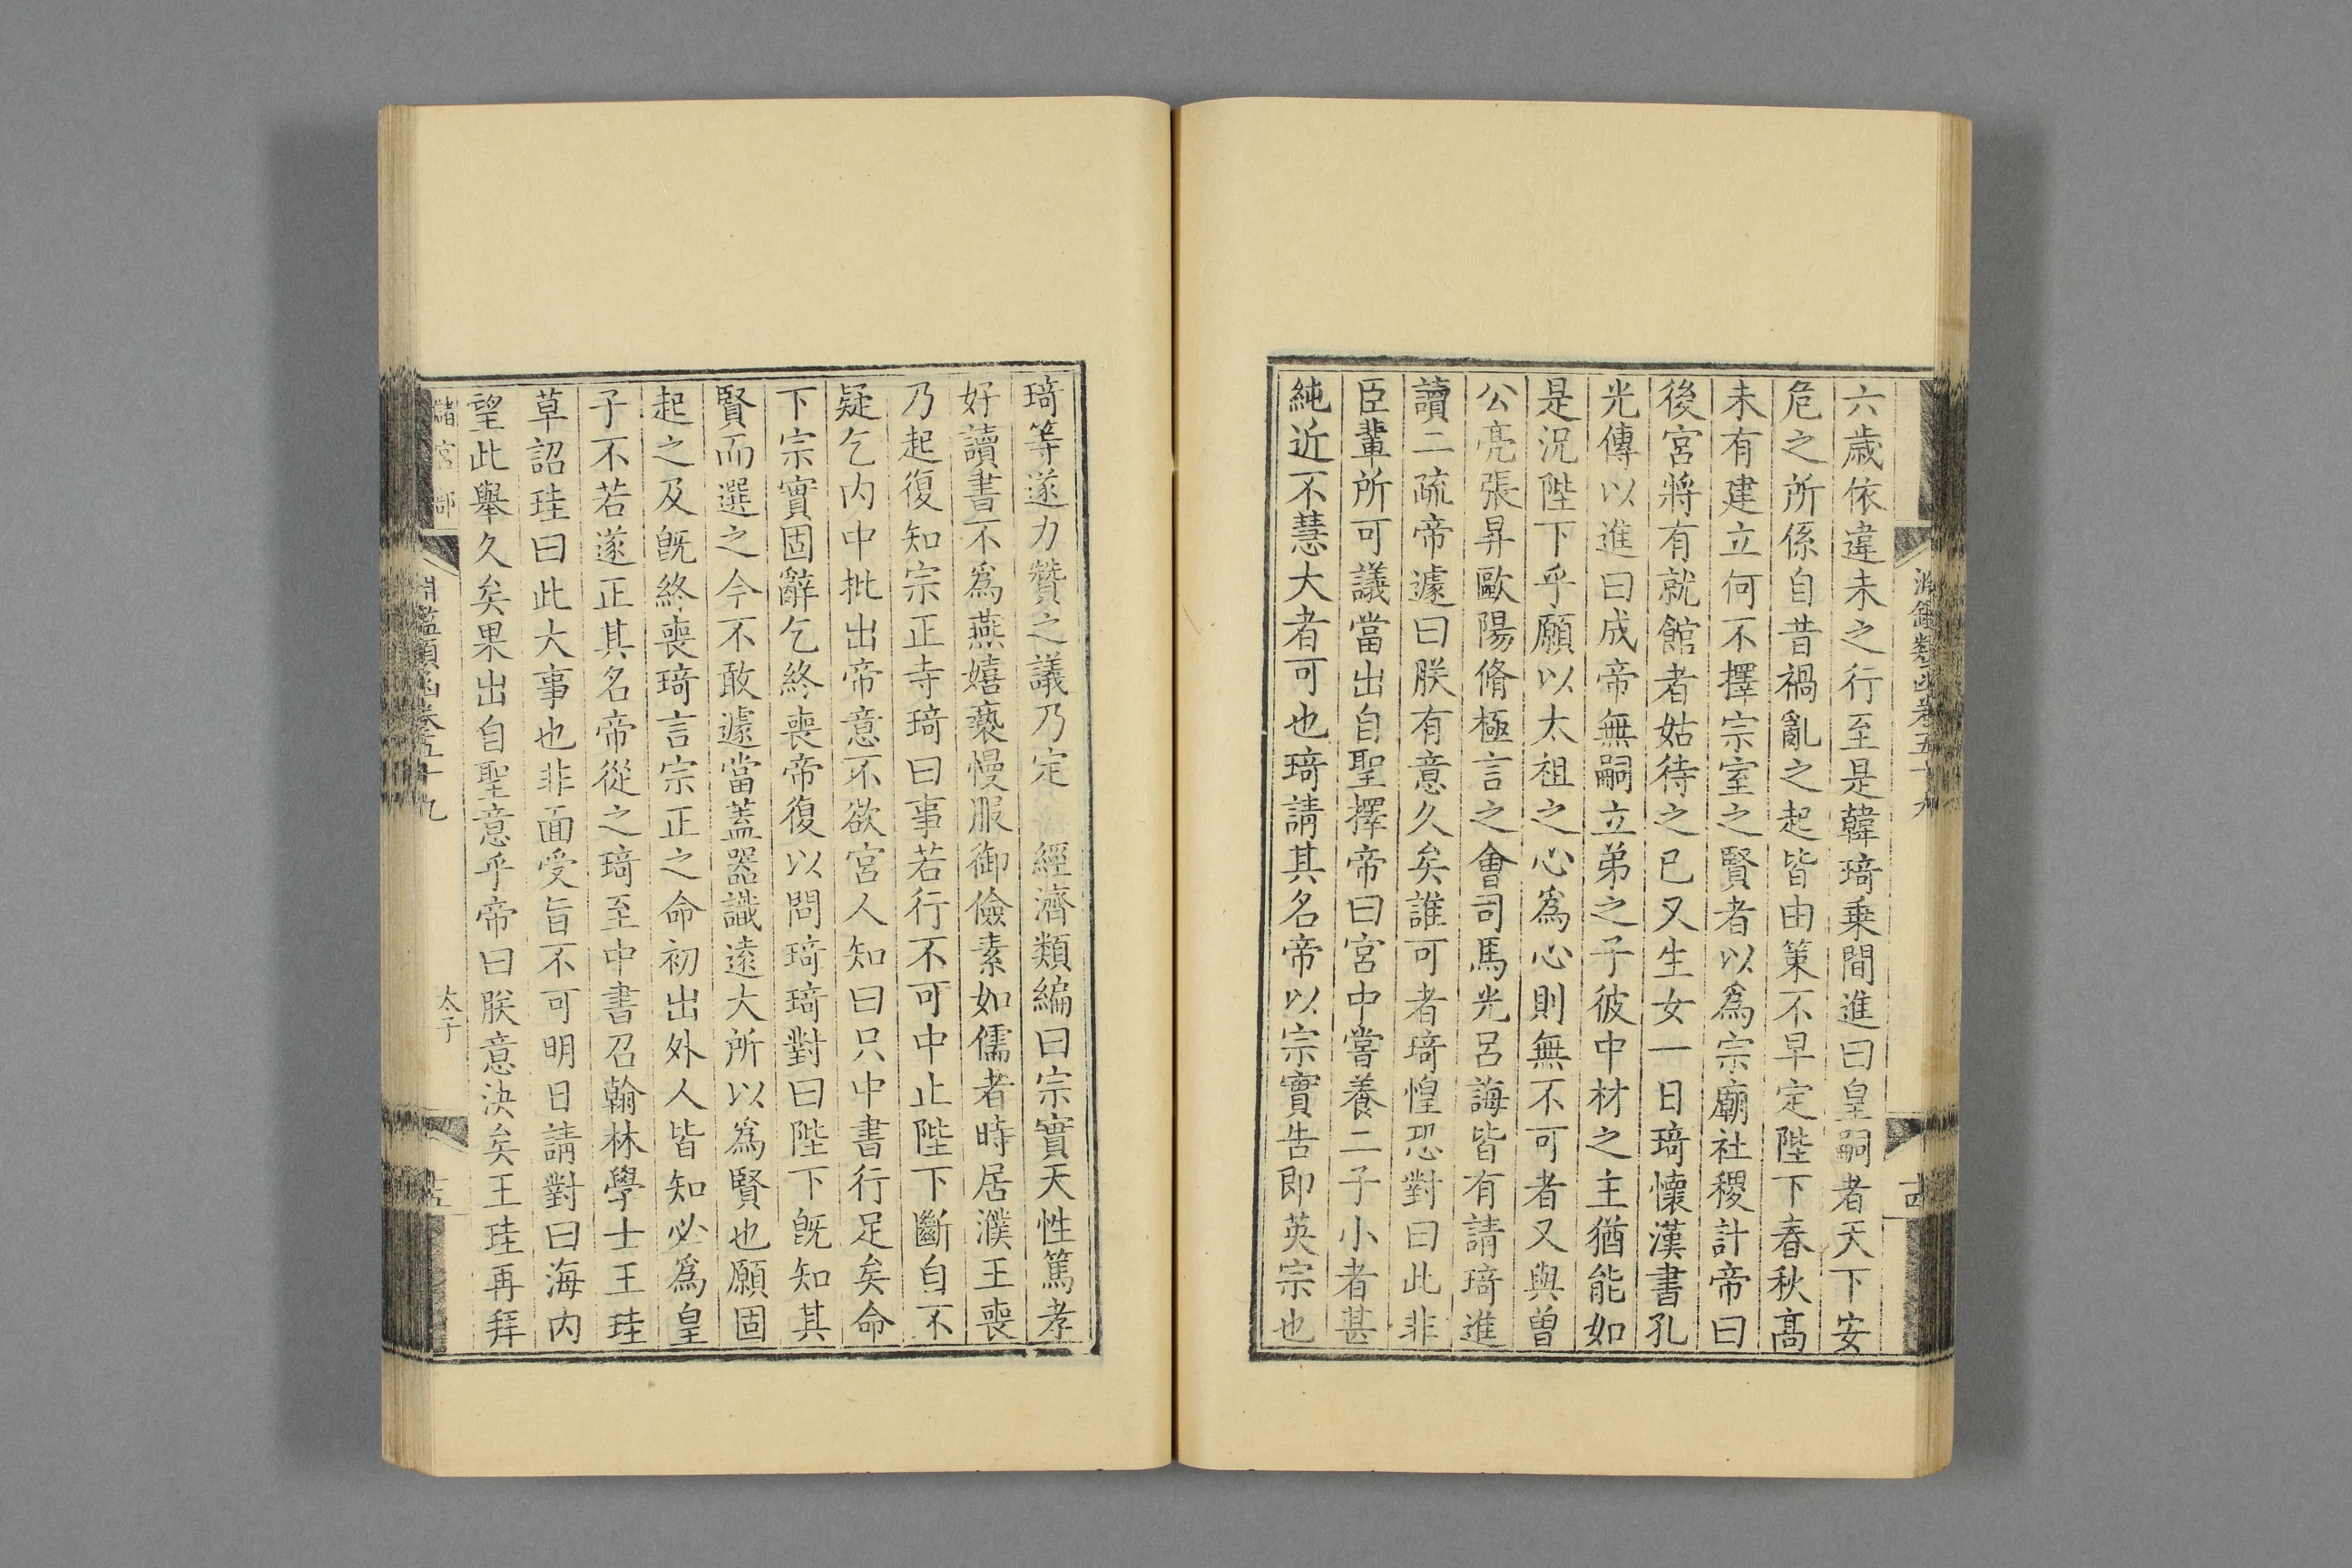 淵鑑類函卷五十九
古
六歲依違未之行至是韓琦乗間進曰皇嗣者天下安
危之所係自昔禍亂之起皆由策不早定陛下春秋髙
未有建立何不擇宗室之賢者以為宗廟社稷計帝曰
後宮將有就館者姑待之已又生女一日琦懐漢書孔
光傳以進曰成帝無嗣立弟之子彼中材之主猶能如
是況陛下乎願以太祖之心為心則無不可者又與曽
公亮張昇歐陽脩極言之㑹司馬光呂誨皆有請琦進
讀二疏帝遽曰朕有意久矣誰可者琦惶恐對曰此非
臣輩所可議當出自聖擇帝曰宮中嘗養二子小者甚
純近不慧大者可也琦請其名帝以宗實告即英宗也
琦等遂力贊之議乃定 經濟類編曰宗實天性篤孝
好讀書不為燕嬉褻慢服御儉素如儒者時居濮王喪
乃起復知宗正寺琦曰事若行不可中止陛下斷自不
疑乞内中批出帝意不欲宮人知曰只中書行足矣命
下宗實固辭乞終喪帝復以問琦琦對曰陛下旣知其
賢而選之今不敢遽當葢器識逺大所以為賢也願固
起之及旣終喪琦言宗正之命初出外人皆知必為皇
子不若遂正其名帝從之琦至中書召翰林學士王珪
草詔珪曰此大事也非面受旨不可明日請對曰海内
望此舉久矣果出自聖意乎帝曰朕意決矣王珪再拜
儲宮部
淵鑑類函卷五十九
太子